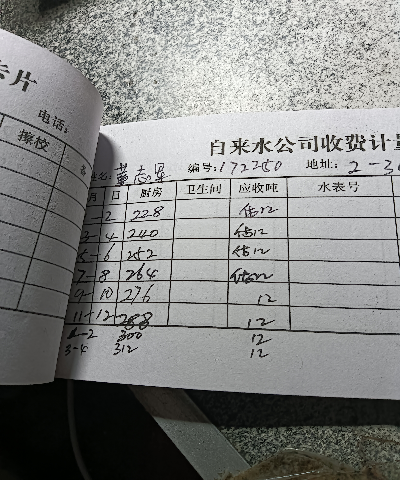 卡片
电话:
换校
自来水公司收费计量
姓名: 董志军 编号: 172250 地址: 2-30
月 日 厨房 卫生间 应收吨 水表号
-2 228 估12
3-4 240 估12
5-6 252 估12
7-8 264 估12
9-10 276 12
11-12 288 12
1-2 300 12
3-4 312 12